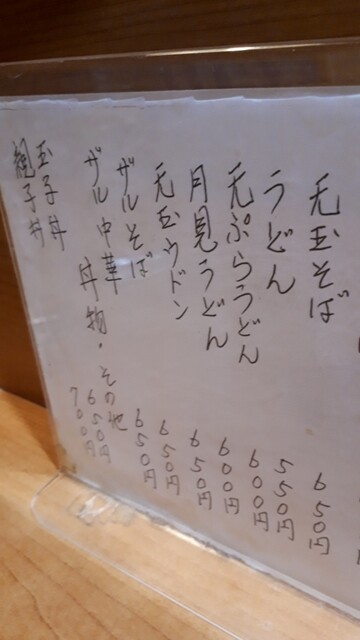 天玉そば 650円
うどん 550円
天ぷらうどん 600円
月見うどん 600円
天玉ウドン 650円
ザルそば 650円
ザル中華 650円
丼物・その他
玉子丼 650円
親子丼 700円